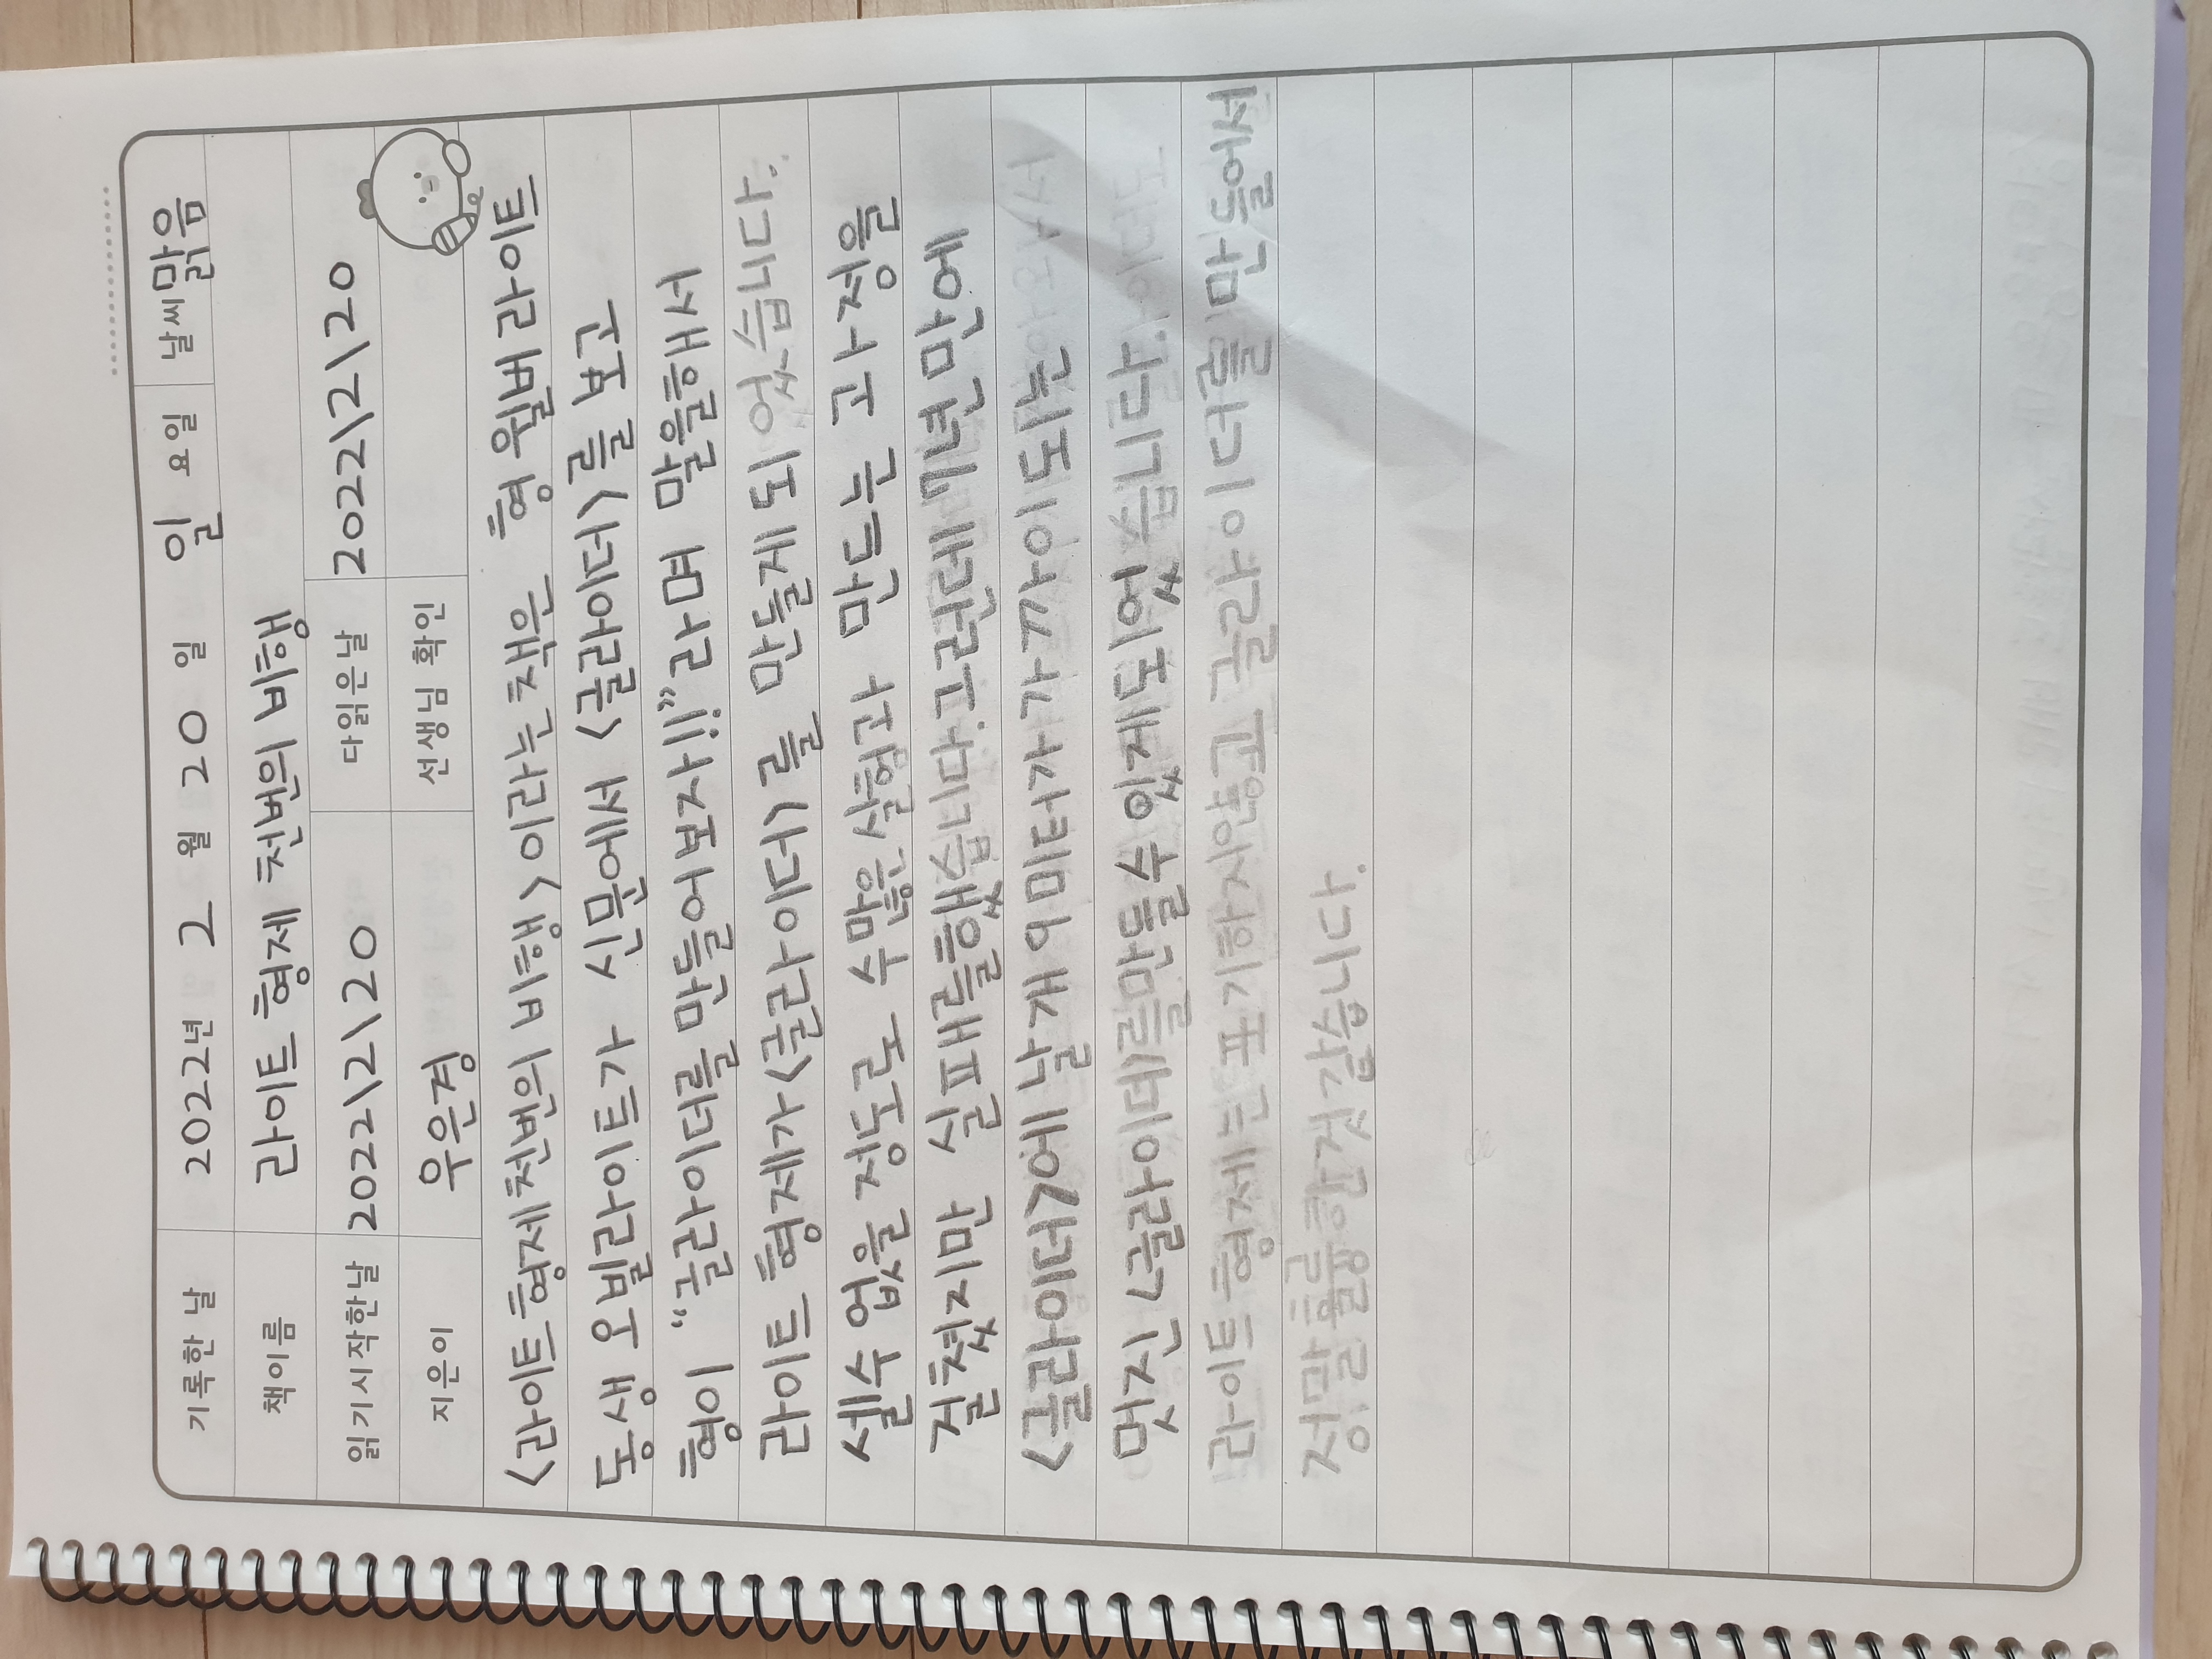 기록한 날 2022년 2 월 20 일 일 요일 날씨 맑음
책이름 라이트 형제 천번의 비행
읽기시작한날 2022\2\20 다읽은날 2022\2\20
지은이 우은경 선생님 확인
<라이트 형제 천번의 비행>이라는 책은 형 윌버 라이트
동생 오빌라이트가 신문에서 <글라이더>를 보고
형이 "글라이더를 만들어보자!!"라며 말을해서
라이트 형제가<글라이더>를 만들게 되었습니다.
셀수 없을 정도로 수많은 실험과 만드는 과정을
걸쳤지만 실패를했습니다. 그런데 7년 만에
<글라이더>에 날개 9미터가 가까이 되는
멋진 <글라이더>를만들수 있게되었습니다.
라이트 형제는 포기하지않고 글라이더를 만들어서
정말 훌륭한것 같습니다.